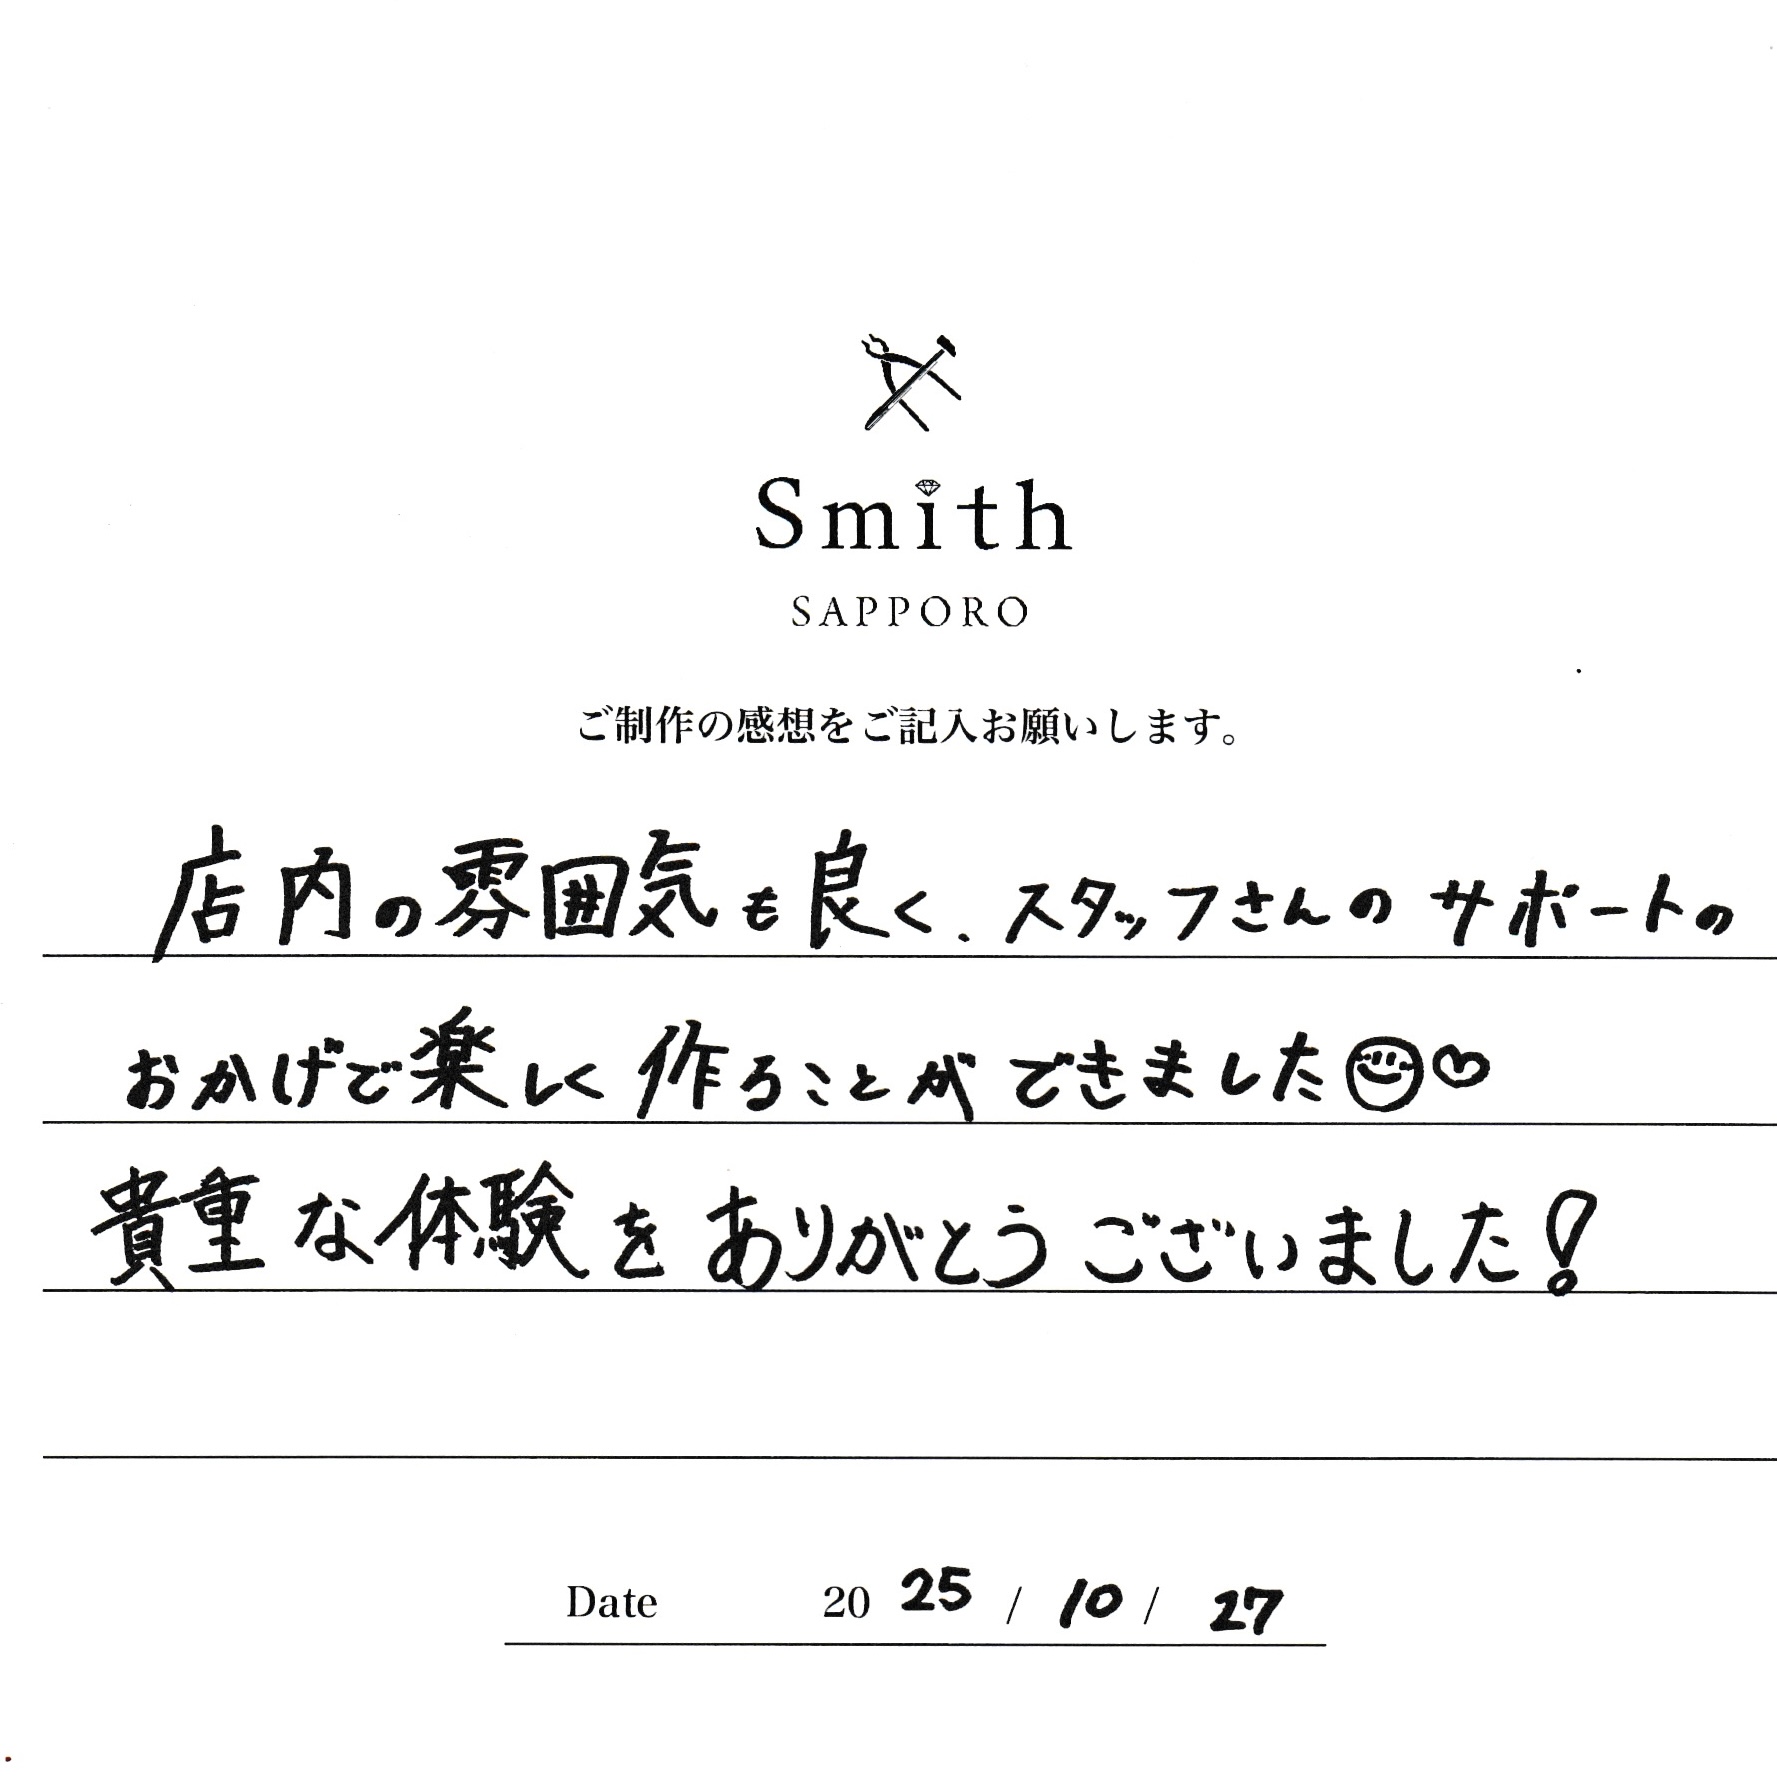 Smith
SAPPORO
ご制作の感想をご記入お願いします。
店内の雰囲気も良く、スタッフさんのサポートの
おかげで楽しく作ることができました☺♡
貴重な体験をありがとうございました!
Date 2025 / 10 / 27